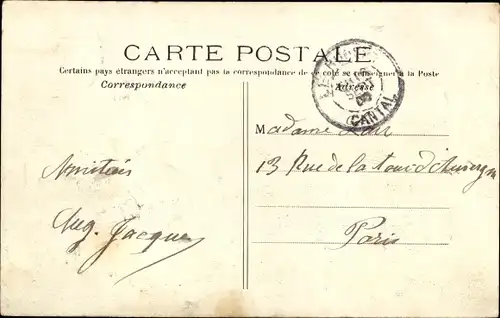 CARTE POSTALE
Certains pays étrangers n'acceptant pas la correspondance de ce côté se renseigner à la Poste
Correspondance
Adresse
(CANTAL)
Madame
13 Rue de la Tour d'Auvergne
Amitiés
Aug. Jacques
Paris